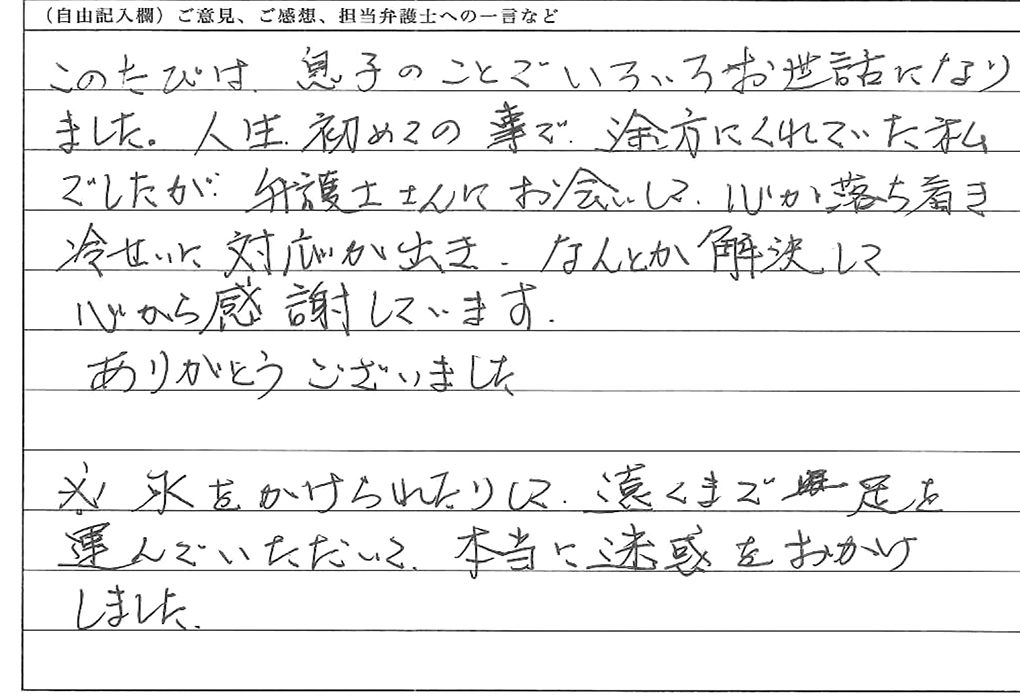 （自由記入欄）ご意見、ご感想、担当弁護士への一言など
このたびは、息子のことでいろいろお世話になり
ました。人生、初めての事で、途方にくれていた私
でしたが、弁護士さんにお会いして、心が落ち着き
冷せいに対応が出き、なんとか解決して
心から感謝しています。
ありがとうございました
※ 水をかけられたりして、遠くまで足を
運んでいただいて、本当に迷惑をおかけ
しました。